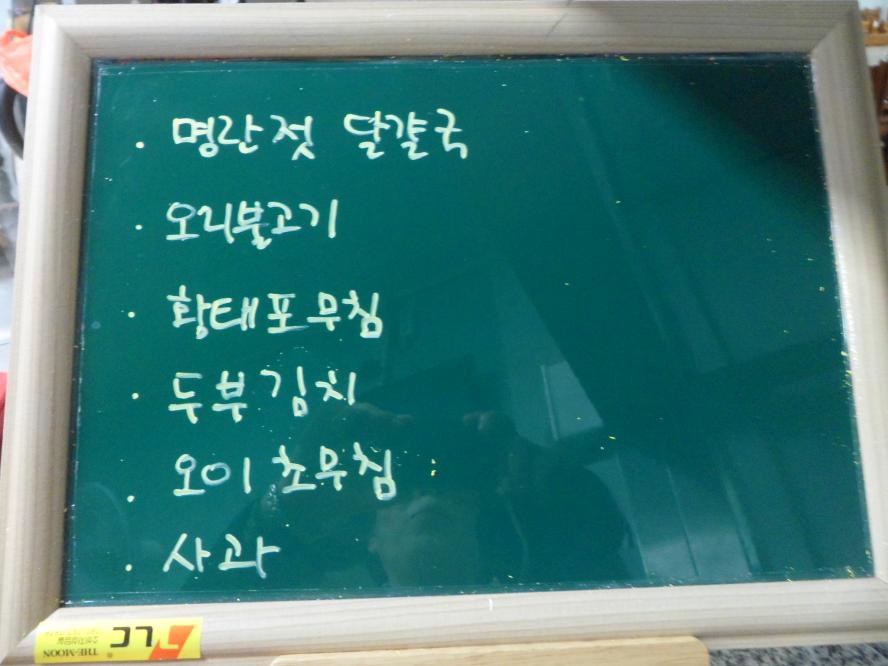 · 명란젓 달걀국
· 오리불고기
· 황태포무침
· 두부김치
· 오이초무침
· 사과
THE-MOON